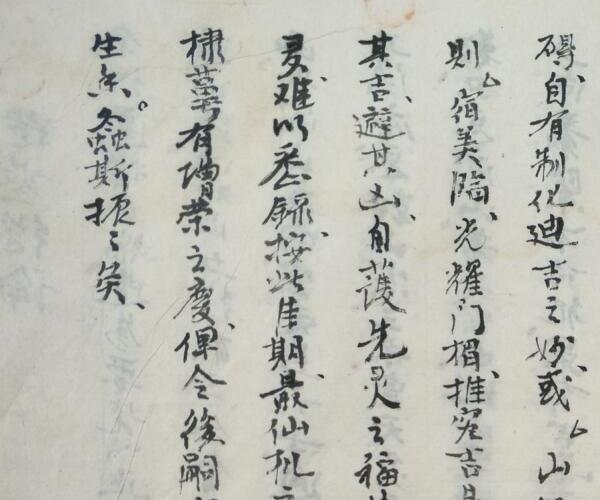 碍、自有制化迪吉之妙、或山
则宿美临、光耀门楣、推究吉
其吉、避其凶、自护先灵之福
灵、难以悉錄、按此佳期、最仙机
棣萼有增荣之庆、俾令後嗣
生色。螽斯振之矣、